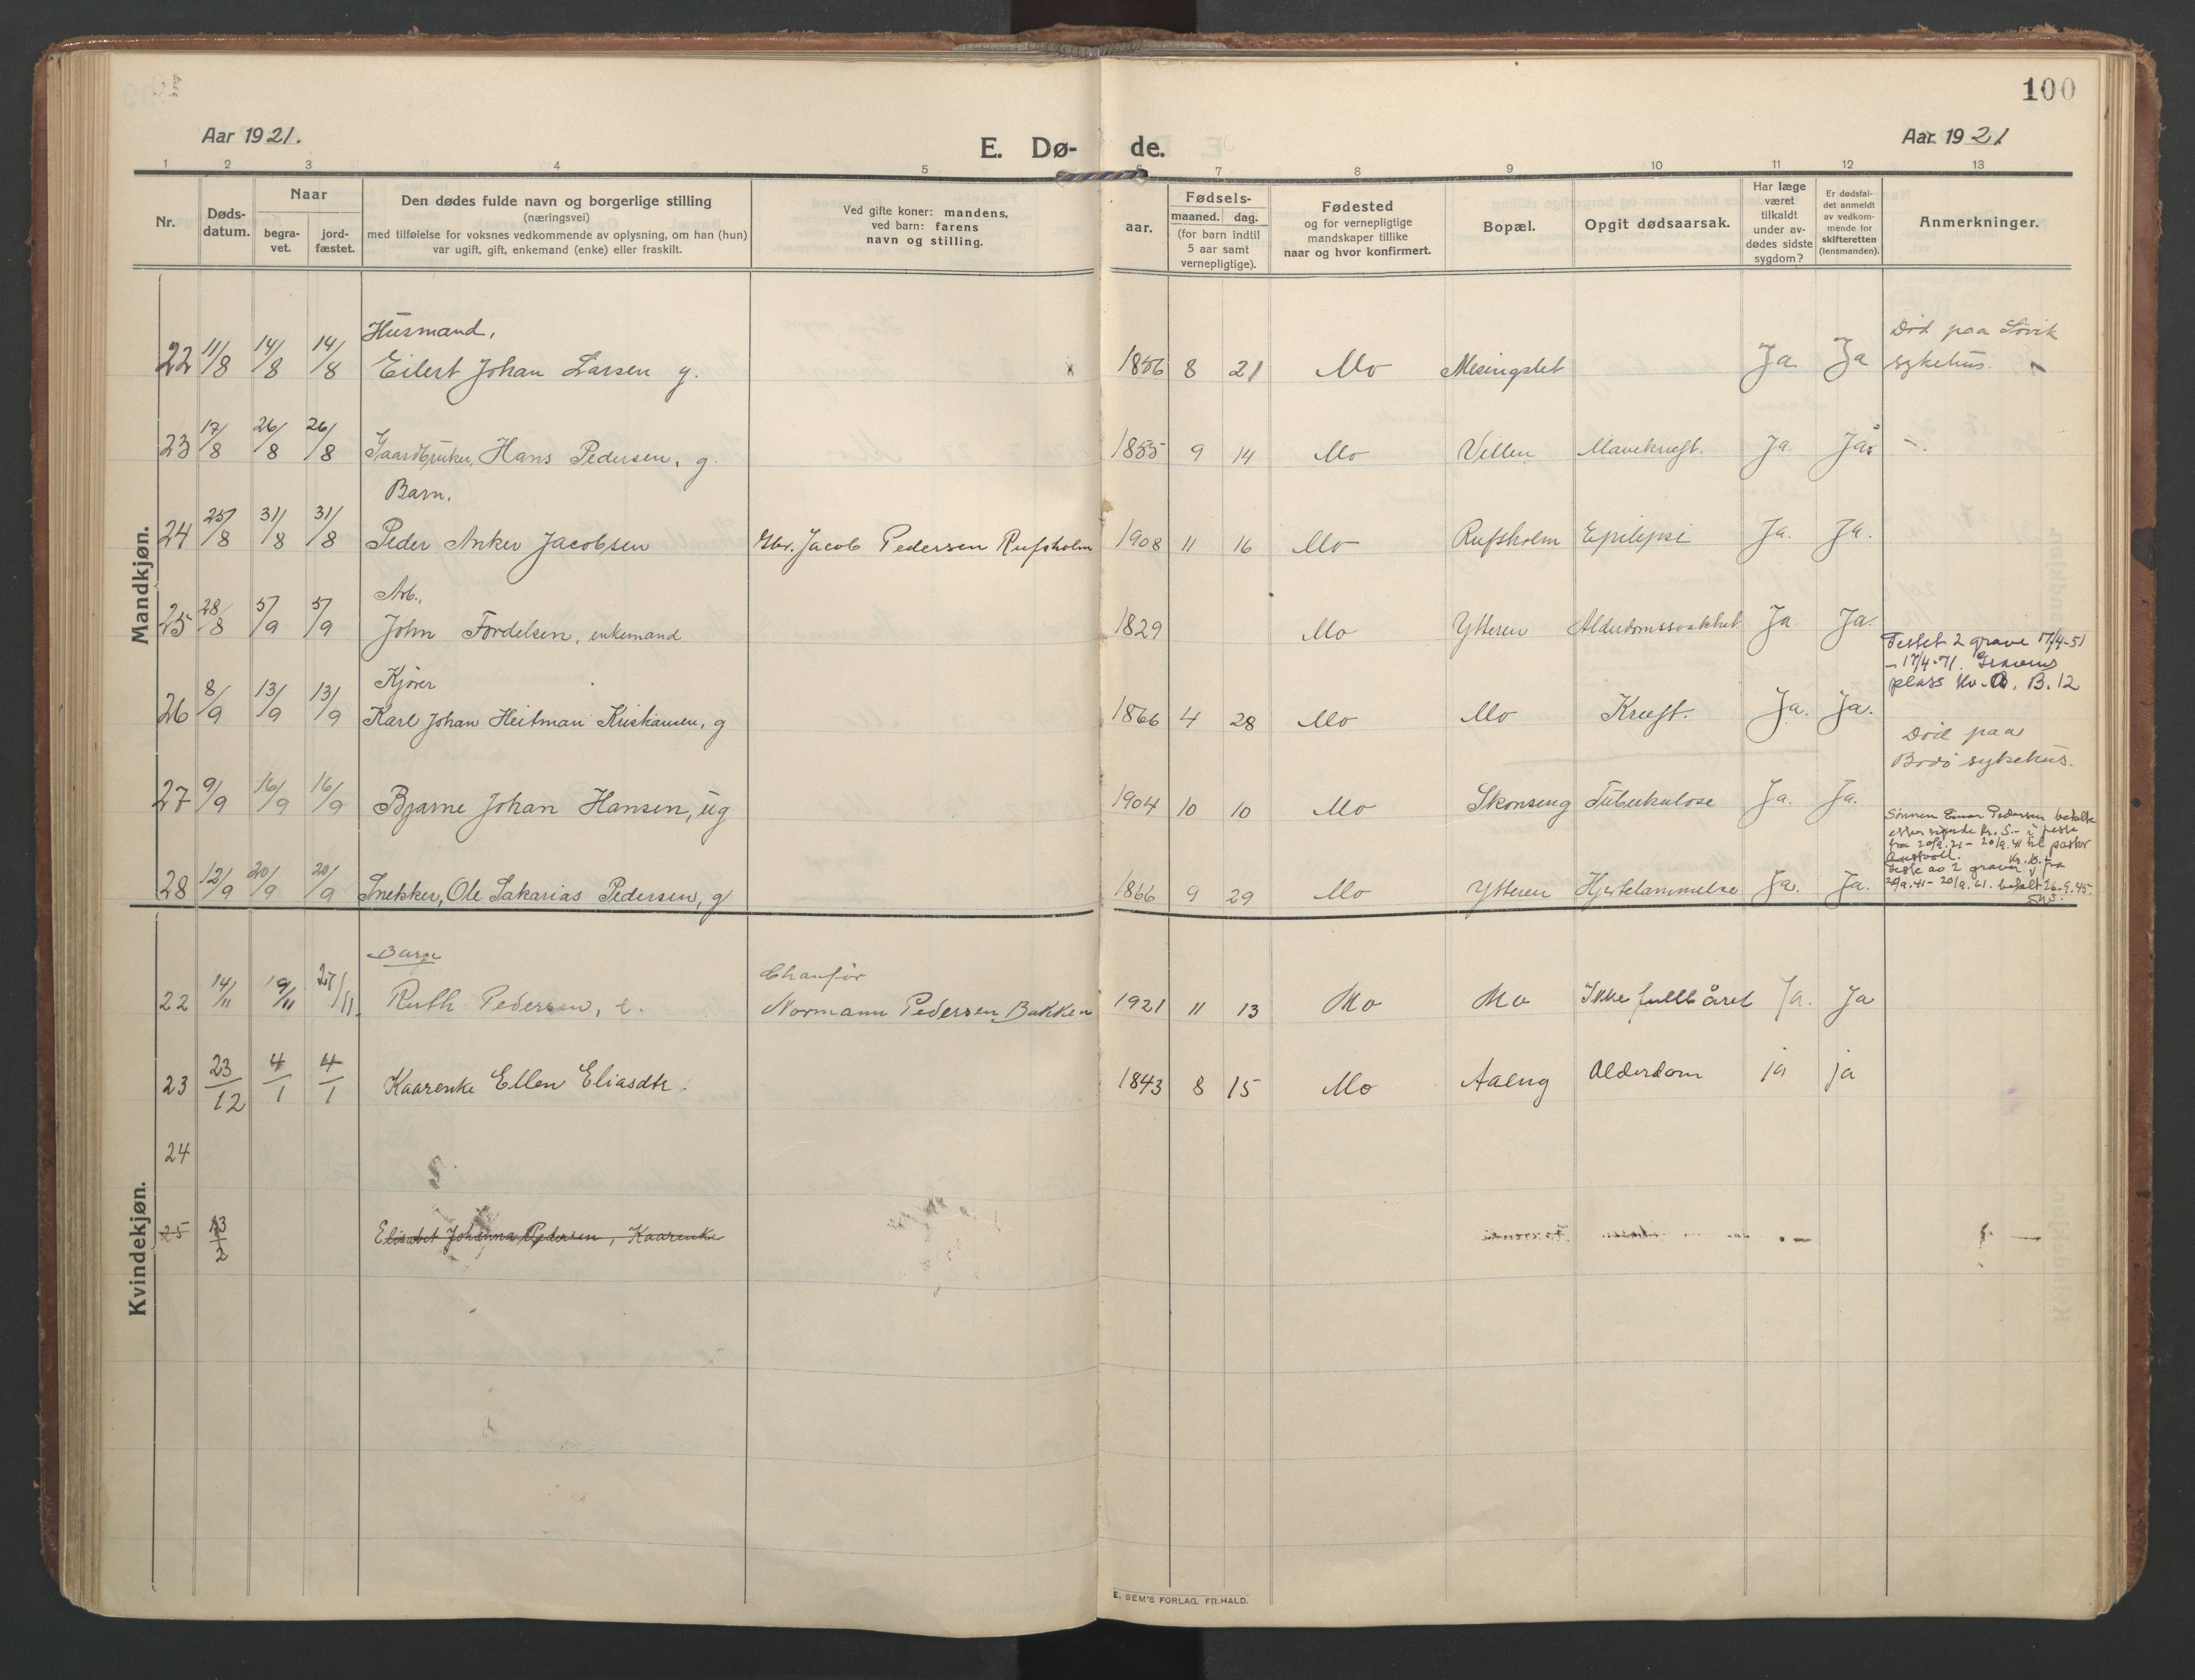 100
Aar 1921.
E. Dø- de.
Aar 1921
1 2 3 4 5 6 7 8 9 10 11 12 13
Nr.
Døds-
datum.
Naar
begra-
vet.
jord-
fæstet.
Den dødes fulde navn og borgerlige stilling
(næringsvei)
med tilføielse for voksnes vedkommende av oplysning, om han (hun)
var ugift, gift, enkemand (enke) eller fraskilt.
Ved gifte koner: mandens,
ved barn: farens
navn og stilling.
Fødsels-
aar.
maaned. dag.
(for barn indtil
5 aar samt
vernepligtige).
Fødested
og for vernepligtige
mandskaper tillike
naar og hvor konfirmert.
Bopæl.
Opgit dødsaarsak.
Har læge
været
tilkaldt
under av-
dødes sidste
sygdom?
Er dødsfal-
det anmeldt
av vedkom-
mende for
skifteretten
(lensmanden).
Anmerkninger.
Mandkjøn.
Husmand,
22 11/8 14/8 14/8 Eilert Johan Larsen g. 1856 8 21 Mo Mesingslet Ja. Ja
Død paa Søvik
sykehus.
23 17/8 26/8 26/8 Gaardbruker, Hans Pedersen, g. 1855 9 14 Mo Villen Mavekræft. Ja. Ja
Barn.
24 25/8 31/8 31/8 Peder Anker Jacobsen Gbr. Jacob Pedersen Rufsholm 1908 11 16 Mo Rufsholm Epilepsi Ja. Ja.
Arb.,
25 28/8 5/9 5/9 John Fordelsen, enkemand 1829 Mo Ytteren Alderdomssvakhet Ja. Ja.
Festet 2 grave 17/4-51
- 17/4-71. Gravens
plass Kv. B. 12
Kjører
26 8/9 13/9 13/9 Karl Johan Heitman Kristiansen, g 1866 4 28 Mo Mo Kræft. Ja. Ja.
Død paa
Bodø sykehus.
27 9/9 16/9 16/9 Bjarne Johan Hansen, ug 1904 10 10 Mo Skonseng Tuberkulose Ja. Ja.
Sønnen Einar Pedersen betalte
kr. 5.- i feste
fra 20/9.21 - 20/9.41 til pastor
Kr. 10.-
feste av 2 graver fra
20/9.41 - 20/9.61. betalt 26-9.45.
28 12/9 20/9 20/9 Snekker, Ole Sakarias Pedersen, g 1866 9 29 Mo Ytteren Hjertelammelse Ja. Ja.
Kvindekjøn.
Barn Chaufør
22 14/11 19/11 27/11. Ruth Pedersen, Normann Pedersen Bakken 1921 11 13 Mo Mo Ikke fullbåret Ja. Ja
23 23/12 4/1 4/1 Kaarenke Ellen Eliasdtr. 1843 8 15 Mo Aaeng Alderdom ja ja
24
25 13/2 Elisabet Johanna Pedersen, Kaarenke
E. SEM'S FORLAG, FR.HALD.